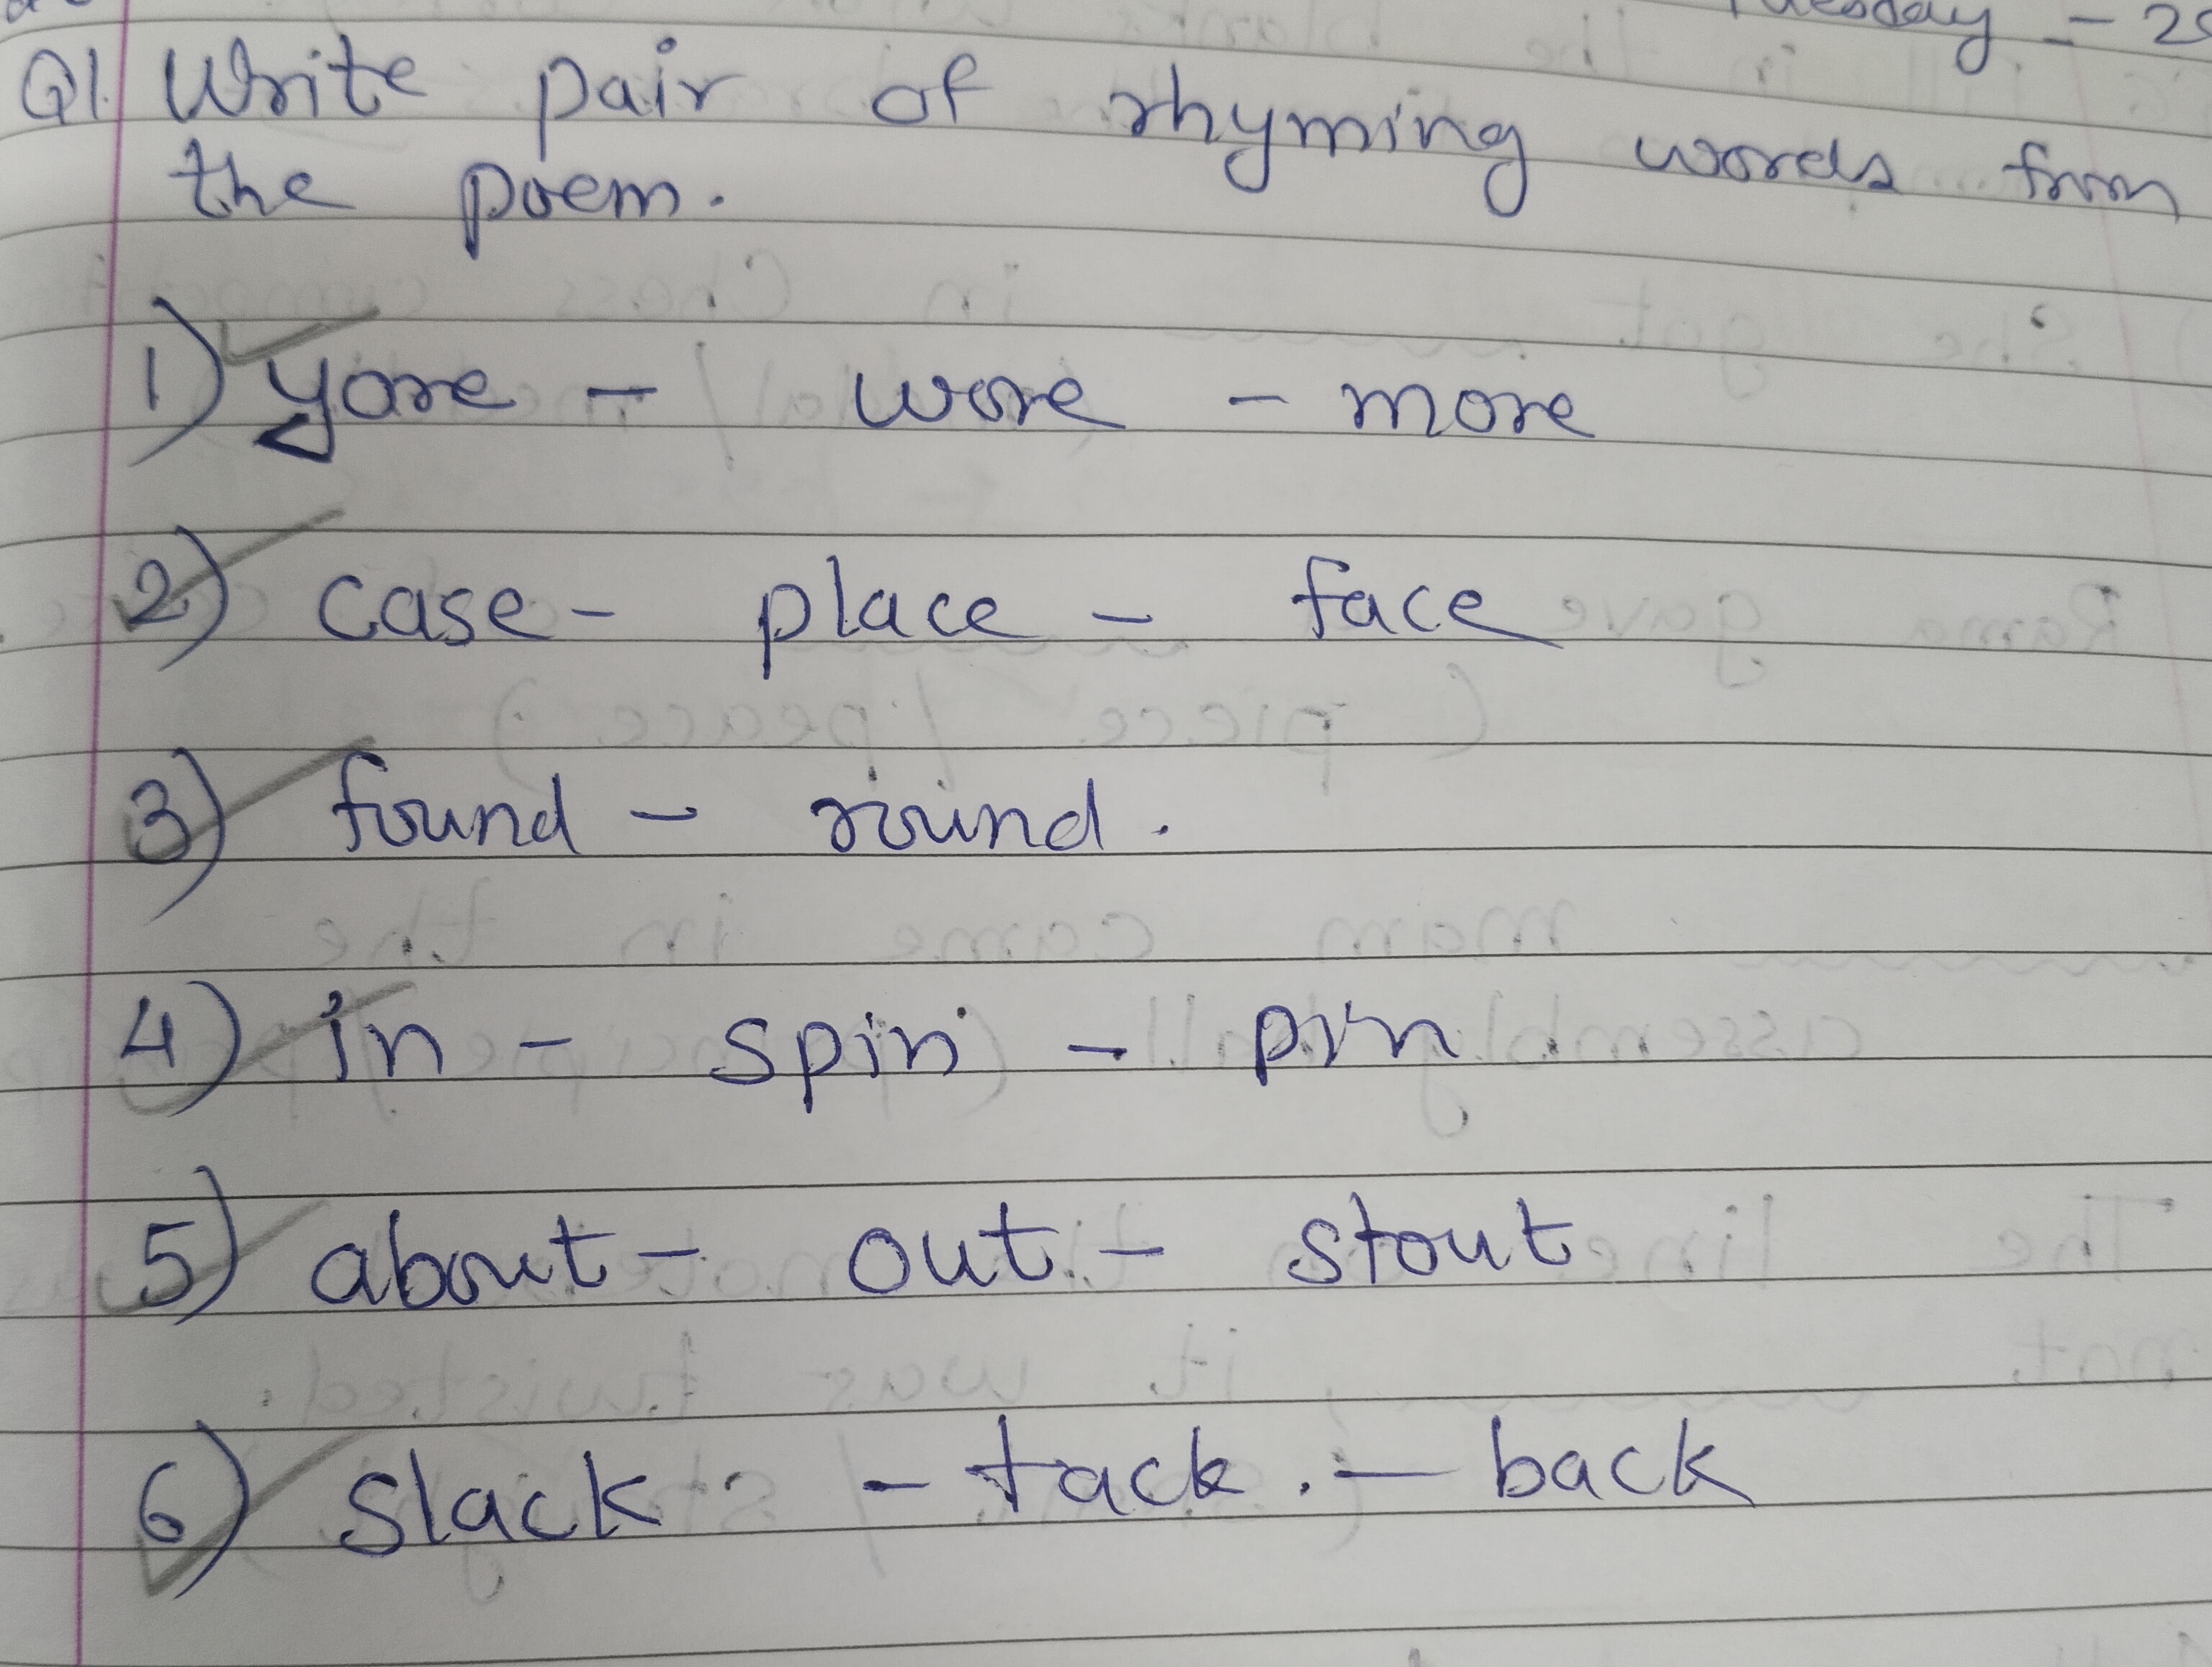 Tuesday - 2
Q1. Write pair of rhyming words from
the poem.
1) yore - wore - more
2) case - place - face
3) found - round.
4) in - spin - pin
5) about - out - stout
6) slack - tack. - back